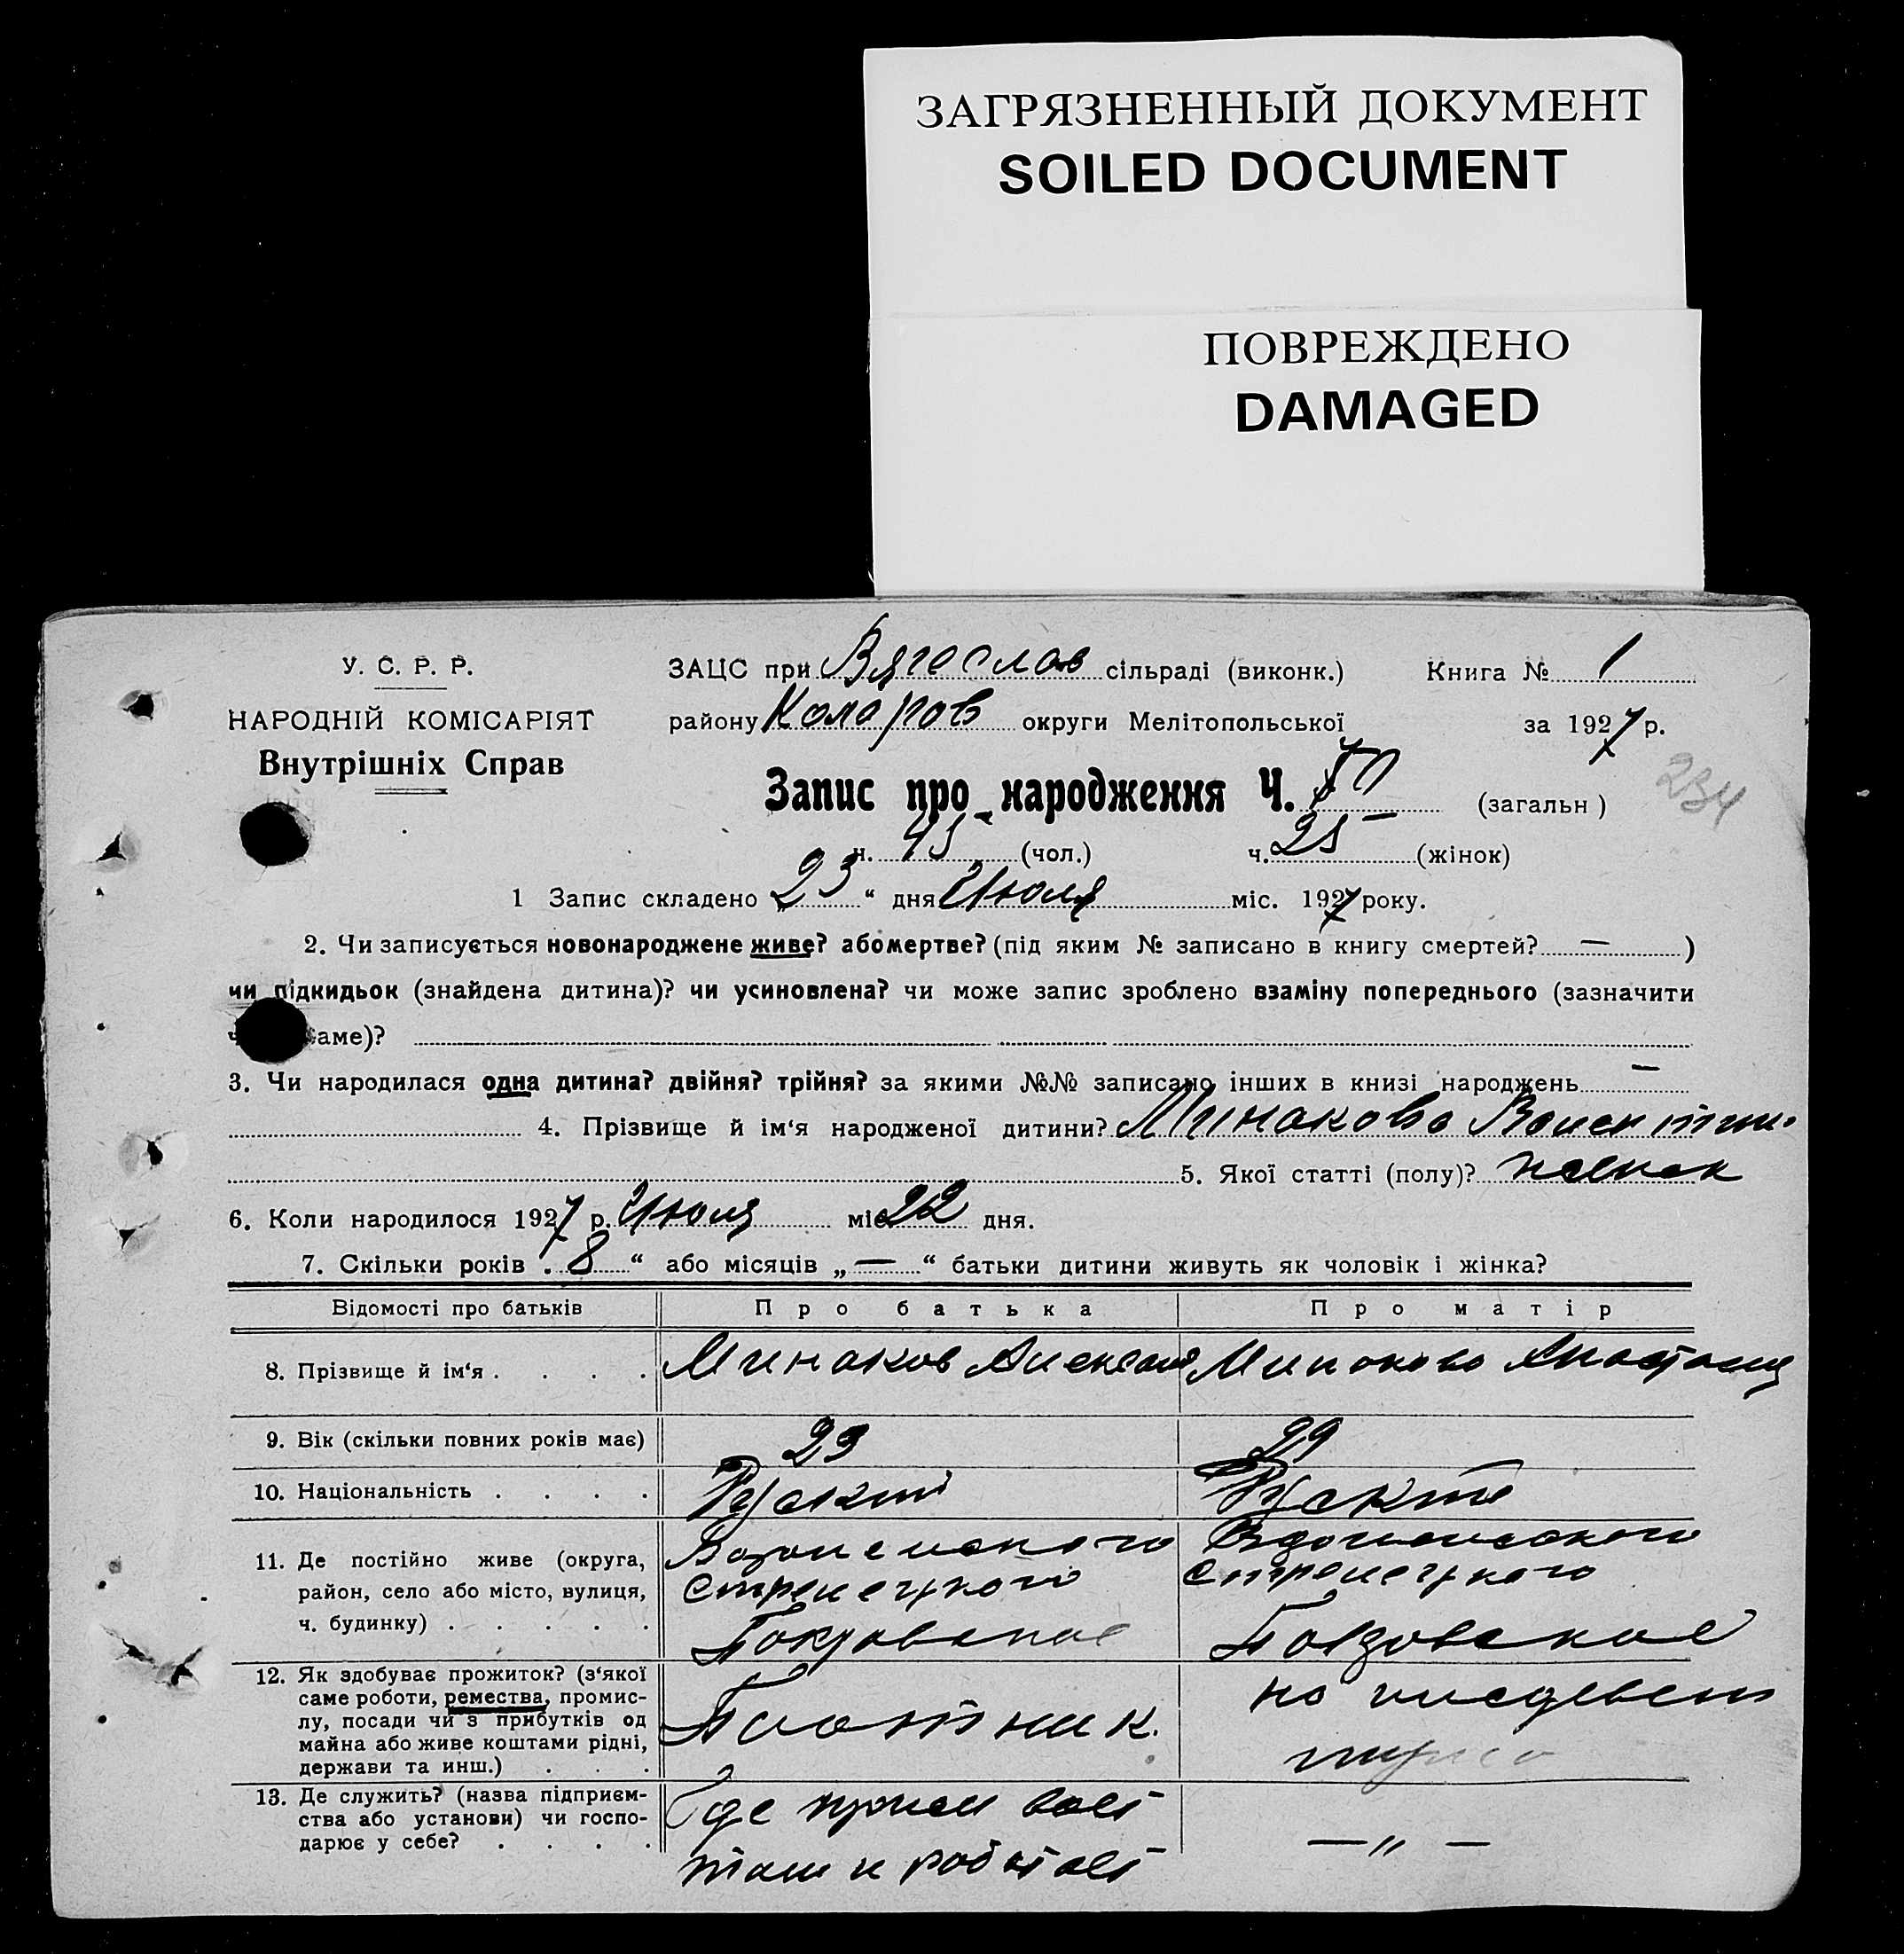 ЗАГРЯЗНЕННЫЙ ДОКУМЕНТ
SOILED DOCUMENT
ПОВРЕЖДЕНО
DAMAGED
У. С. Р. Р.
НАРОДНІЙ КОМІСАРІЯТ
Внутрішніх Справ
ЗАЦС при Вячеслав сільраді (виконк.) Книга № 1
району Коларов округи Мелітопольської за 1927 р.
Запис про народження Ч. 70 (загальн )
234
ч. 45 (чол.) ч. 25 (жінок)
1 Запис складено „ 23 “ дня Июля міс. 1927 року.
2. Чи записується новонароджене живе? або мертве? (під яким № записано в книгу смертей? — )
чи підкидьок (знайдена дитина)? чи усиновлена? чи може запис зроблено взаміну попереднього (зазначити
аме)?
3. Чи народилася одна дитина? двійня? трійня? за якими №№ записано інших в книзі народжень —
4. Прізвище й ім‘я народженої дитини? Минакова
5. Якої статті (полу)?
6. Коли народилося 1927 р. Июля міс 22 дня.
7. Скільки років „ 8 “ або місяців „ — “ батьки дитини живуть як чоловік і жінка?
Відомості про батьків Про батька Про матір
8. Прізвище й ім‘я . . . . Минаков Алексан Минакова Анастасия
9. Вік (скільки повних років має) 29
10. Національність . . . . Руский
11. Де постійно живе (округа,
район, село або місто, вулиця,
ч. будинку) . . . . .
Стрелецкого Стрелецкого
Покровское
12. Як здобуває прожиток? (з‘якої
саме роботи, ремества, промис-
лу, посади чи з прибутків од
майна або живе коштами рідні,
держави та инш.) . . .
Плотник. на иждевен
мужа
13. Де служить? (назва підприєм-
ства або установи) чи госпо-
дарює у себе? . . . .
Где
там и работает
— „ —